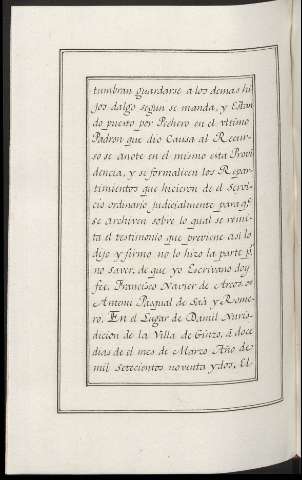 tumbran guardarse a los demas hi
jos dalgo segun se manda, y Estan
do puesto por Pechero en el vltimo
Padron que dio Causa al Recur-
so se anote en el mismo esta Provi
dencia, y se formalicen los Repar-
timientos que hicieron de el Servi-
cio ordinario Judicialmente para q.e
se archiven sobre lo qual se remi-
ta el testimonio que previene así lo
dijo y firmo no lo hizo la parte p.r
no saver, de que yo Escrivano doy
fee. Francisco Xavier de Arcos.
Antemi Pasqual de Saá y Rome-
ro. En el Lugar de Damil Juris-
diccion de la Villa de Ginzo, á doce
dias de el mes de Marzo Año de
mil setecientos noventa y dos. El-